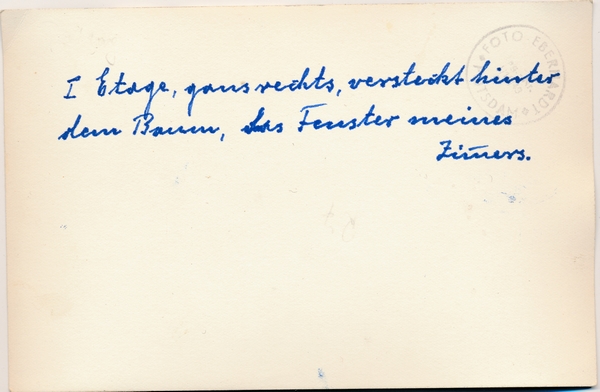 I Etage, ganz rechts, versteckt hinter
dem Baum, das Fenster meines
Zim̄ers.
FOTO EBERHARDT